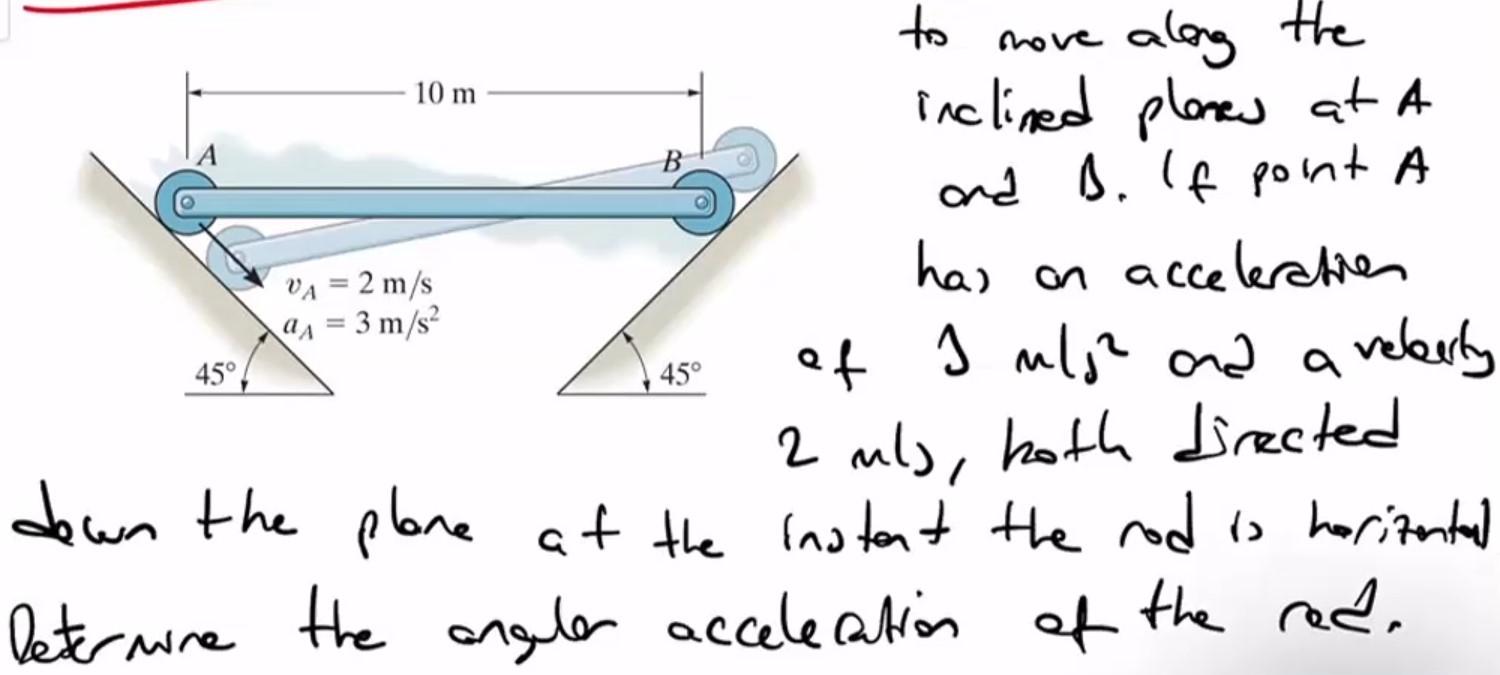 to move along the
10 m
inclined planes at A
A
B
and B. If point A
has an acceleration
vA = 2 m/s
aA = 3 m/s²
of 3 m/s² and a velocity
45°
45°
2 m/s, both directed
down the plane at the instant the rod is horizontal
Determine the angular acceleration of the rod.